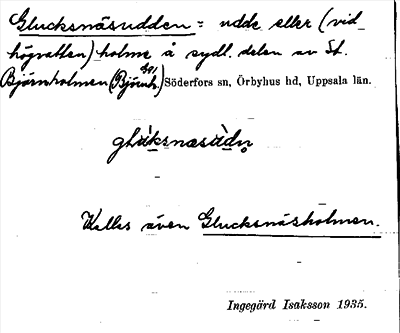 Glucksnäsudden = udde eller (vid
högvatten) holme å sydl. delen av St.
Björnholmen (Björnh.) Söderfors sn, Örbyhus hd, Uppsala län.
glu̇ksnæsu̇dn̥
Kallas även Glucksnäsholmen.
Ingegärd Isaksson 1935.